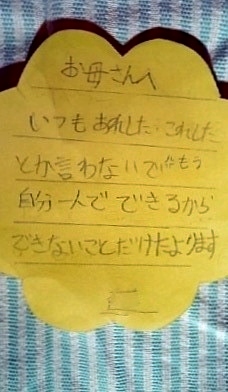 お母さんへ
いつもあれした・これした
とか言わないで。もう
自分一人でできるから
できないことだけたよります
仁